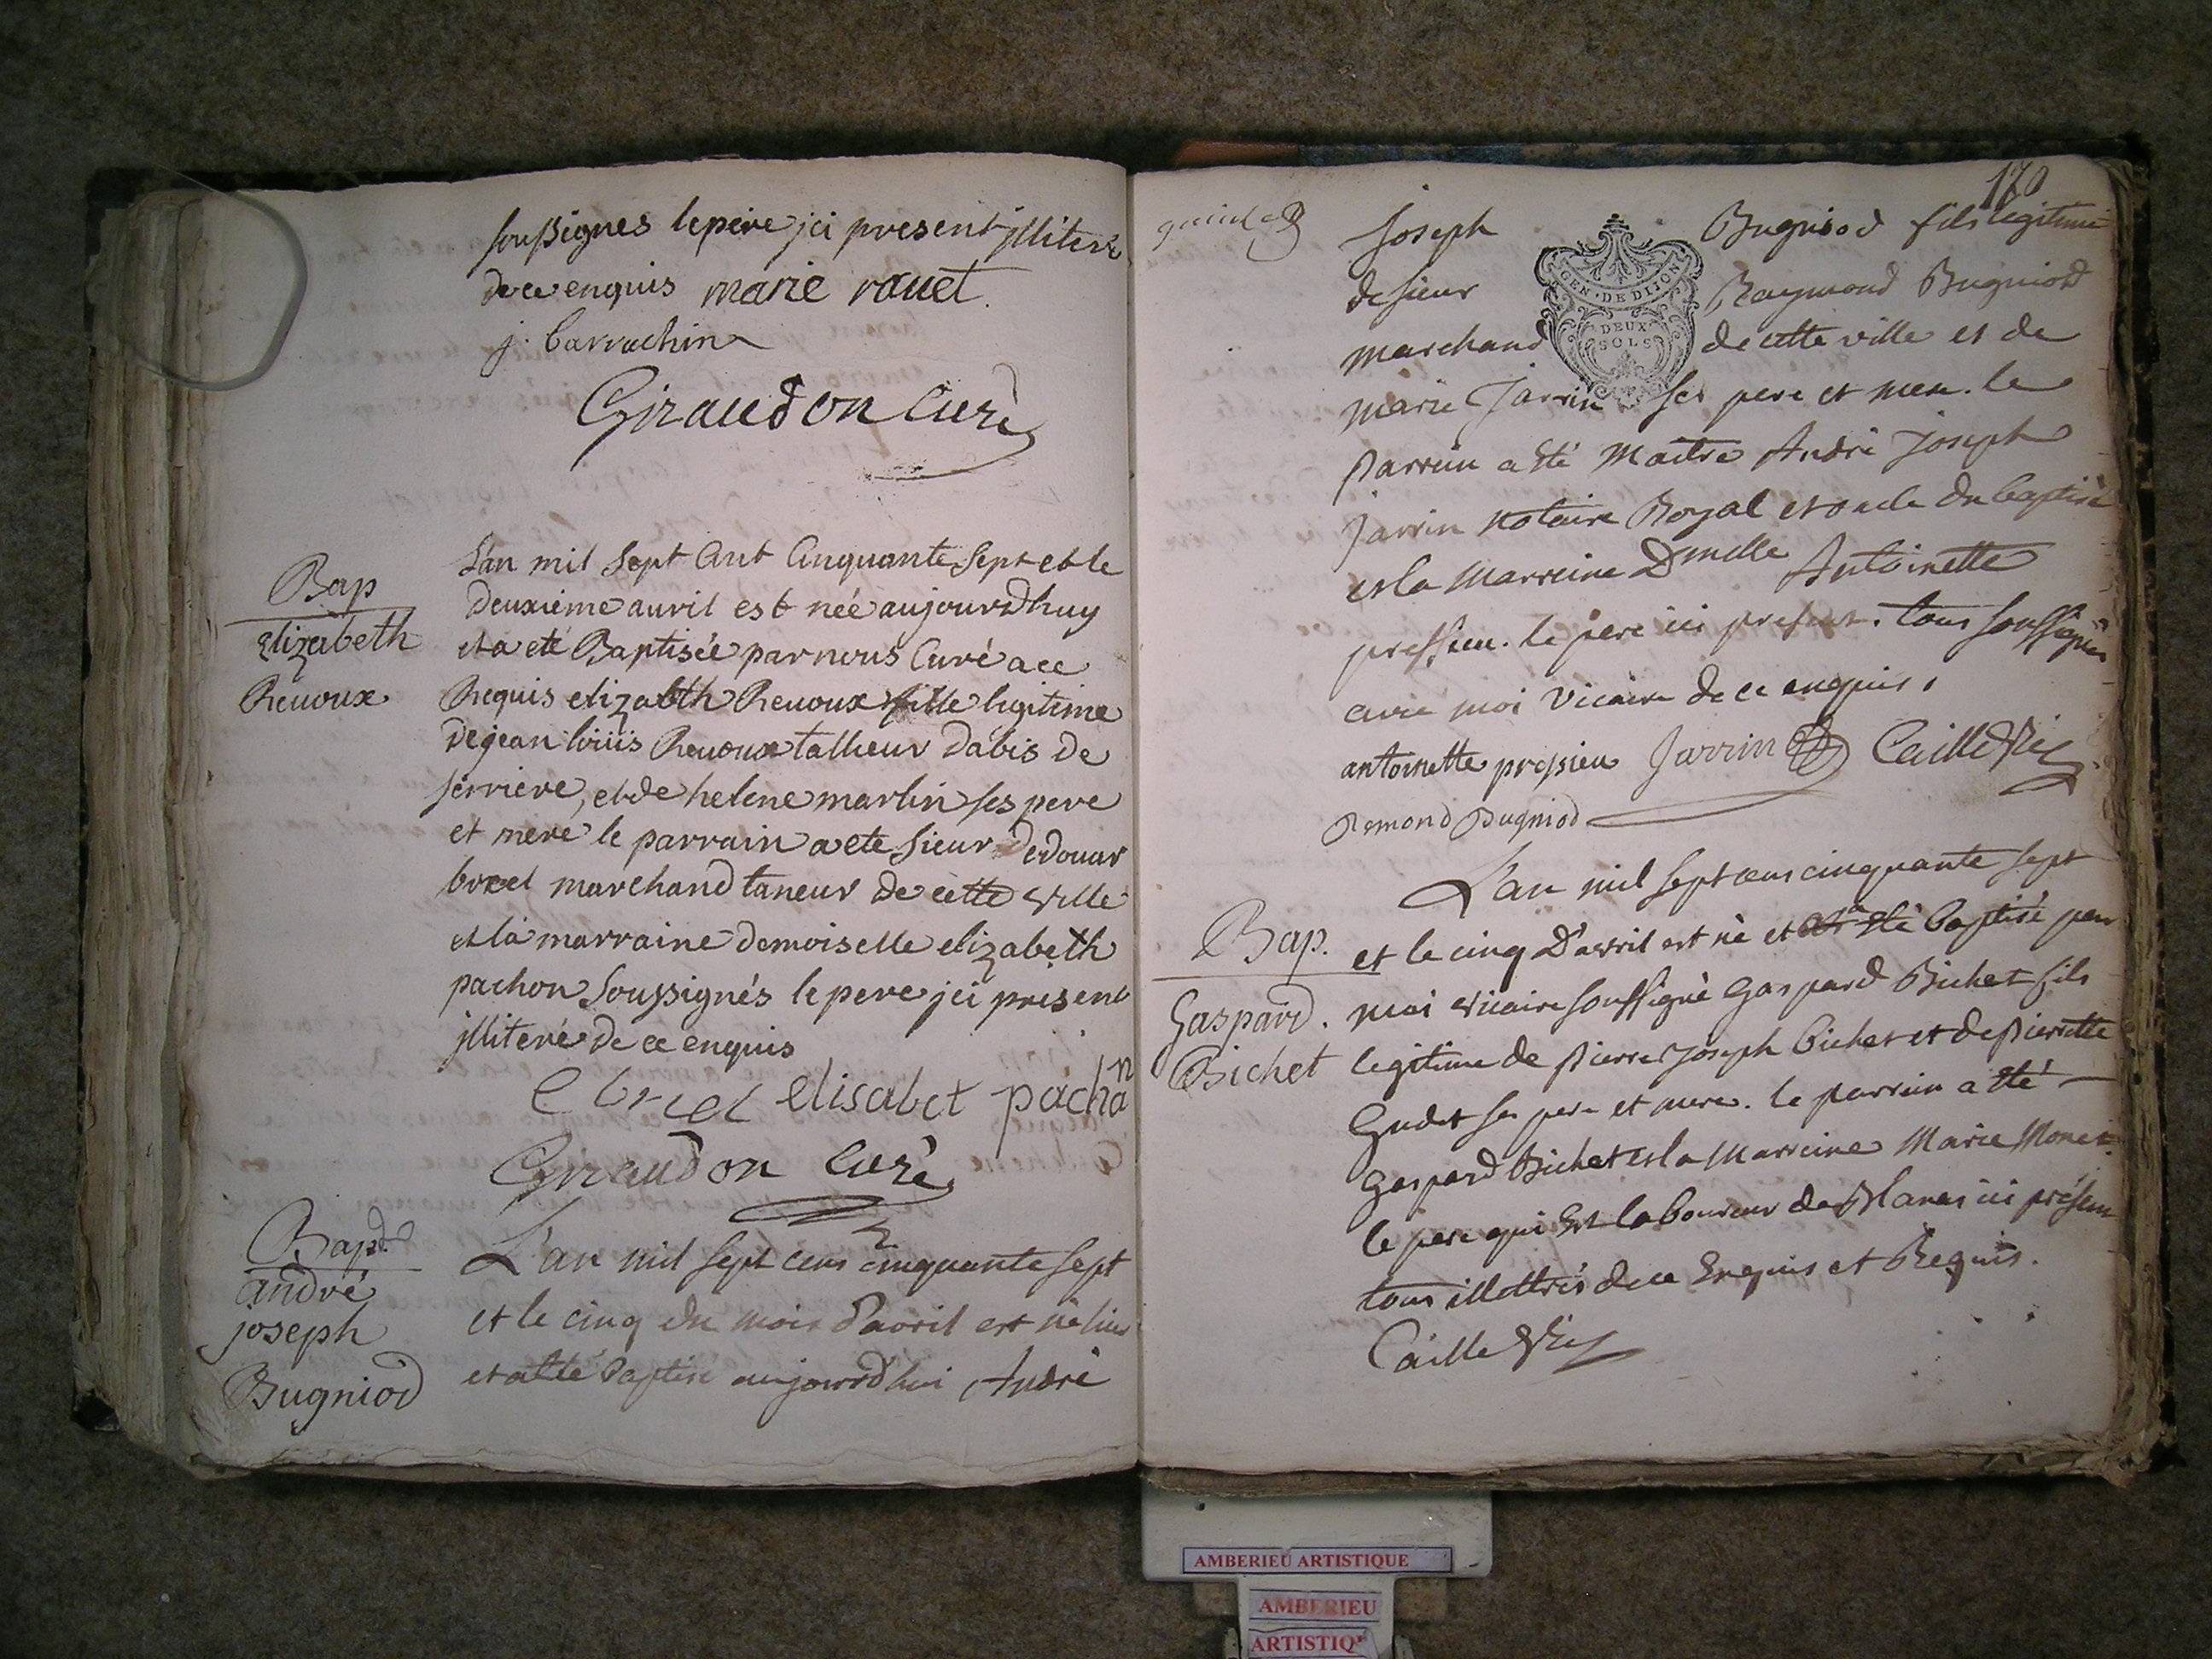 soussignes le pere jci present jlliteré
de ce enquis marie rouet.
j. barrachin
Giraudon Curé
Bap
Elizabeth
Renoux
L'an mil Sept Cent Cinquante Sept et le
deuxième avril est née aujourdhuy
et a eté Baptisée par nous Curé a ce
Requis elizabth Renoux fille legitime
de jean louis Renoux talheur dabis de
serriere, et de helene martin ses pere
et mere le parrain a ete sieur
marchand taneur de cette ville
et la marraine demoiselle elizabeth
pachon Soussignés le pere jci présent
jlliteré de ce enquis
elisabet pachon
Giraudon Curé
Bap
andré
joseph
Bugniod
L'an mil sept cens cinquante sept
et le cinq du mois d'avril est né hier
et a été baptisé aujourd'hui André
170
Joseph Bugniod fils legitime
de sieur Raymond Bugniod
GEN · DE DIJON
DEUX
SOLS
marchand de cette ville et de
marie Jarrin ses pere et mere. le
Parrein a été Maitre André Joseph
Jarrin Notaire Royal et oncle du baptisé
et la Marreine Dmelle Antoinette
pressieu. le pere ici present. tous soussignés
avec moi Vicaire de ce enquis.
antoinette prepsieu Jarrin Caille Vic
Remond Bugniod
Bap.
Gaspard.
Bichet
L'an mil sept cens cinquante sept
et le cinq D'avril est né et a été baptisé par
moi vicaire soussigné Gaspard Bichet fils
legitime de Pierre Joseph Bichet et de Pierrette
Gudet ses pere et mere. le parrein a été
Gaspard Bichet et la Marreine Marie Monet.
le pere qui Est laboureur de Blanas ici présent
tous illettrés de ce Enquis et Requis.
Caille Vic
AMBERIEU ARTISTIQUE
AMBERIEU
ARTISTIQ